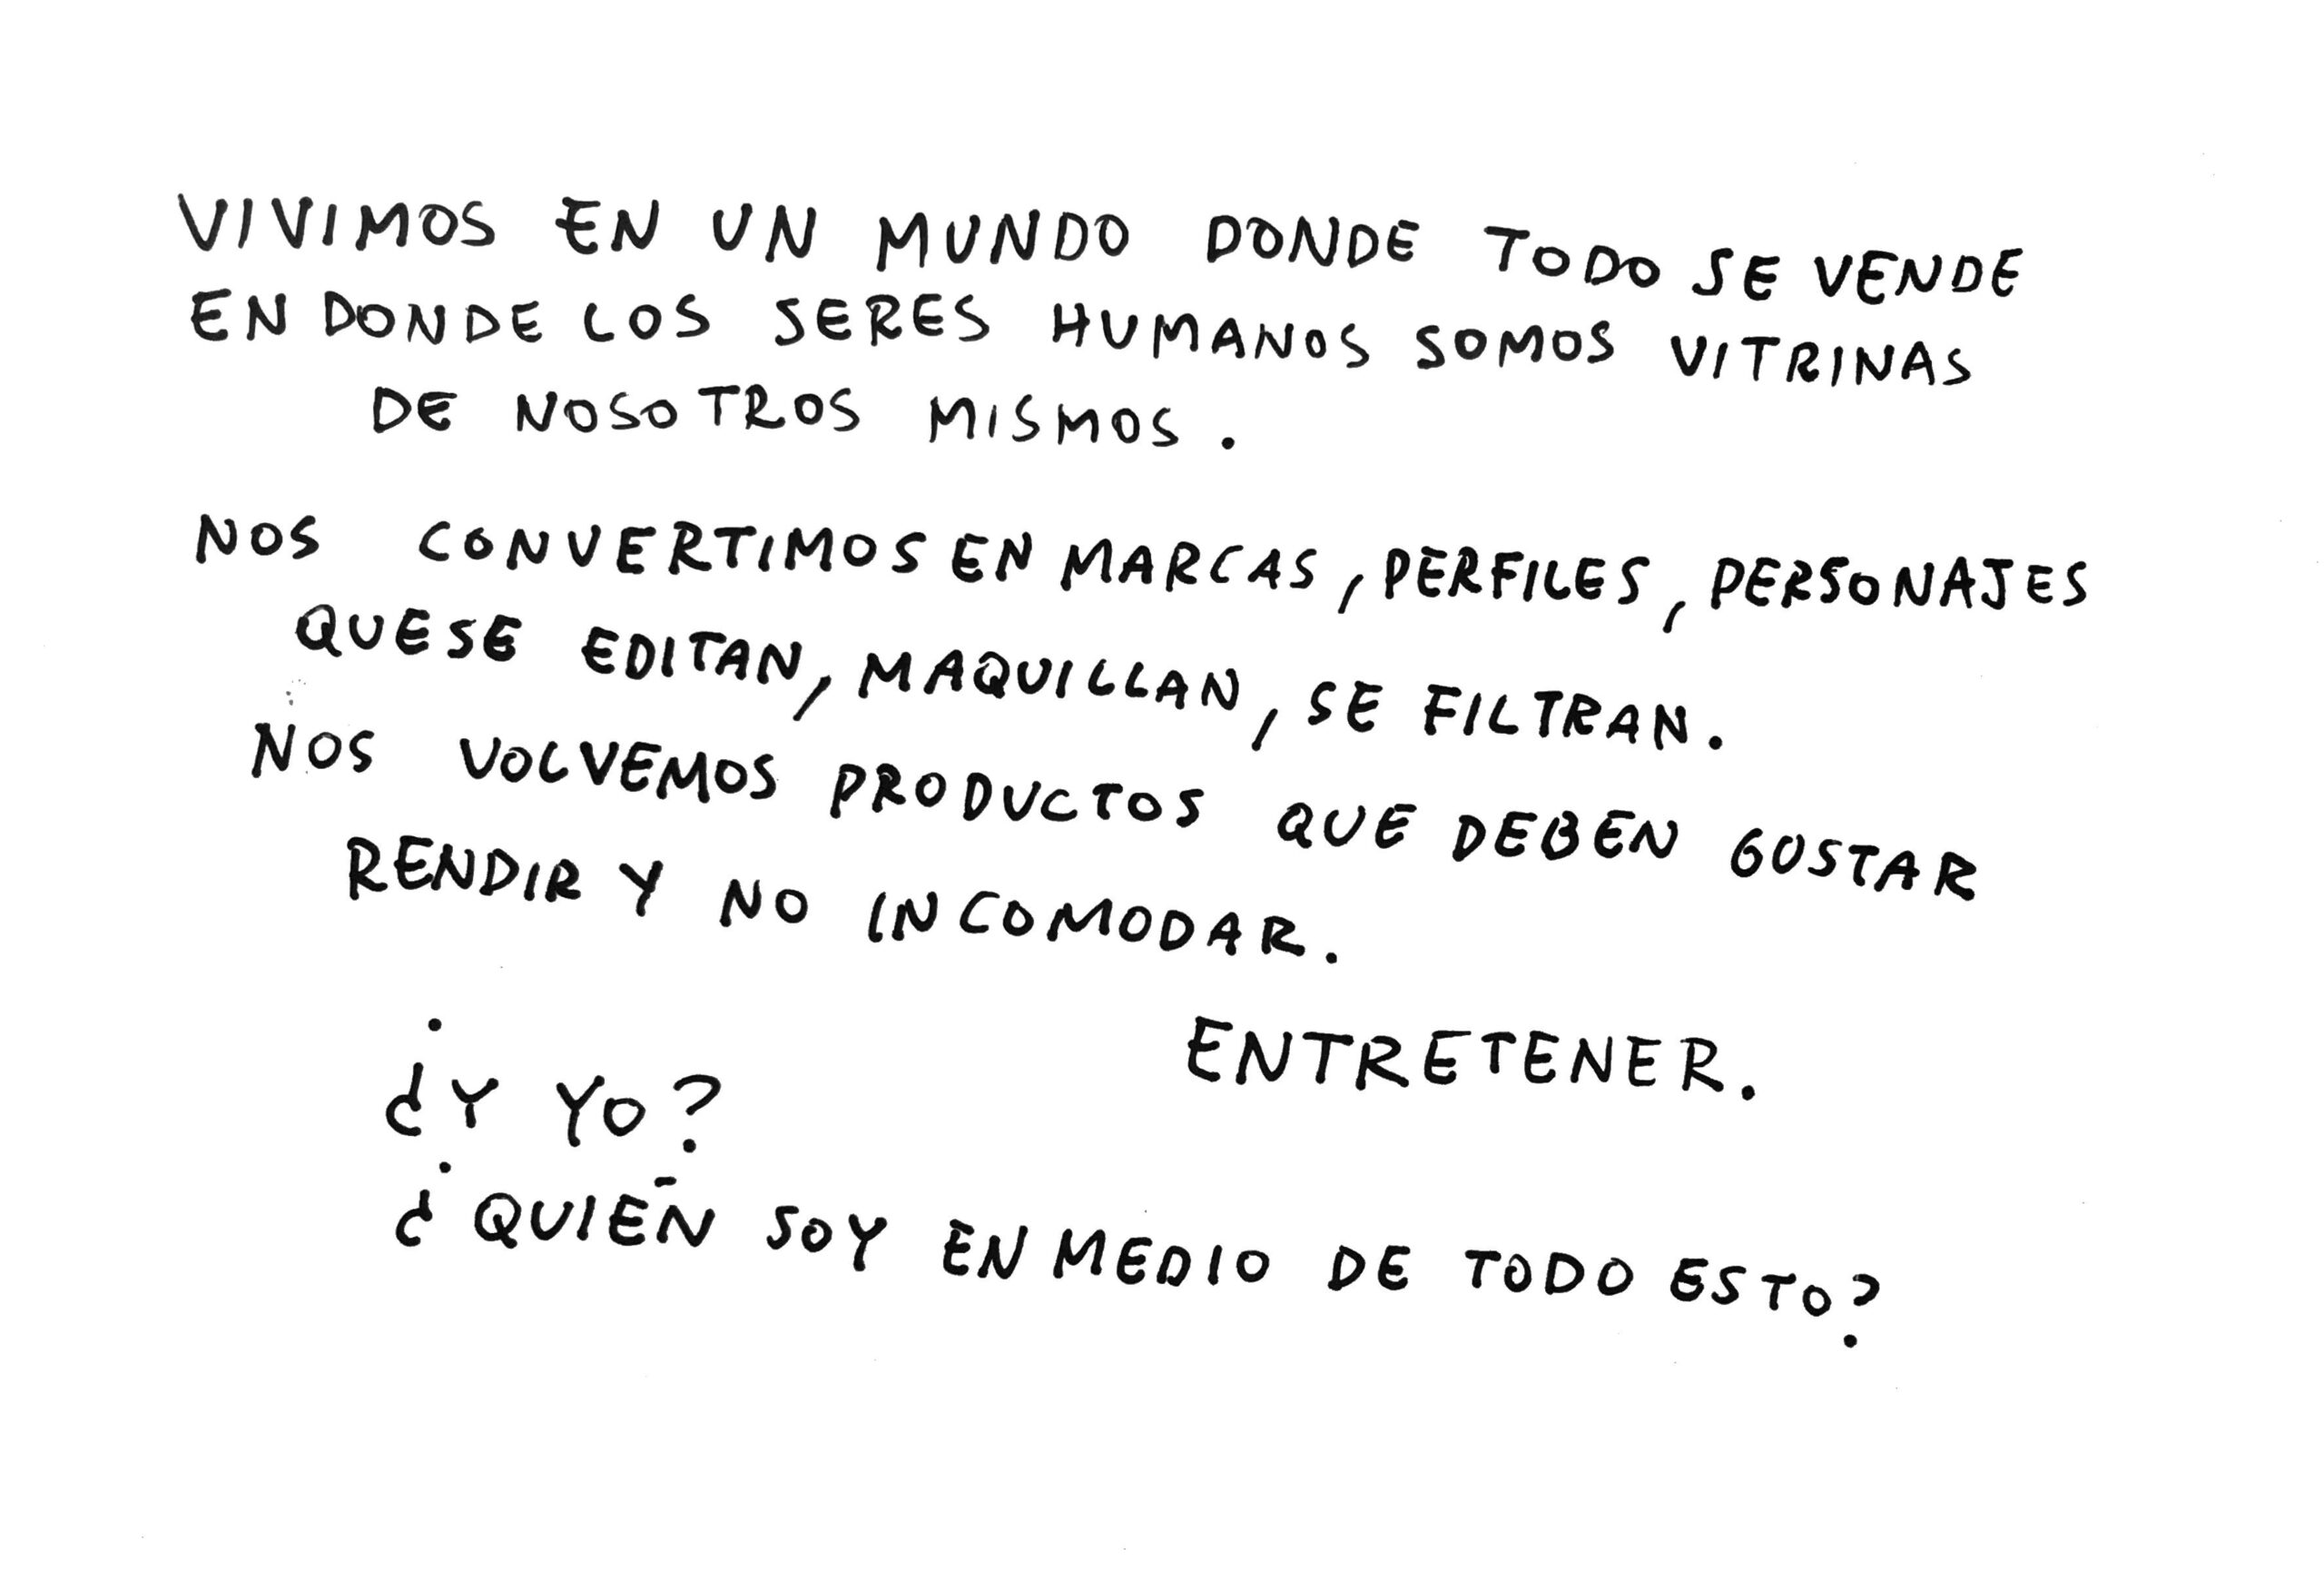 VIVIMOS EN UN MUNDO DONDE TODO SE VENDE
EN DONDE LOS SERES HUMANOS SOMOS VITRINAS
DE NOSOTROS MISMOS.
NOS CONVERTIMOS EN MARCAS, PERFILES, PERSONAJES
QUE SE EDITAN, MAQUILLAN, SE FILTRAN.
NOS VOLVEMOS PRODUCTOS QUE DEBEN GUSTAR
RENDIR Y NO INCOMODAR.
ENTRETENER.
¿Y YO?
¿QUIÉN SOY EN MEDIO DE TODO ESTO?